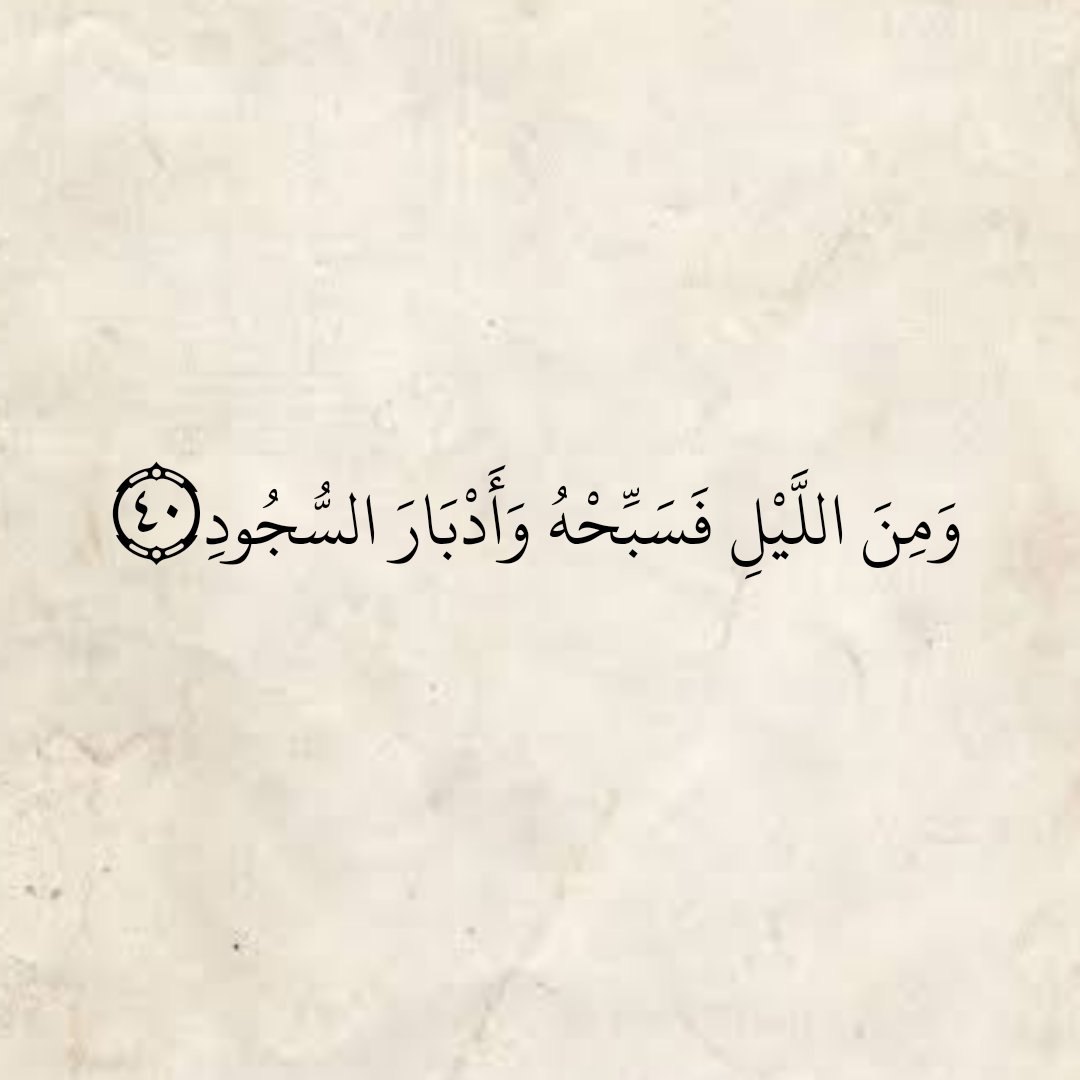 وَمِنَ اللَّيْلِ فَسَبِّحْهُ وَأَدْبَارَ السُّجُودِ ۝٤٠